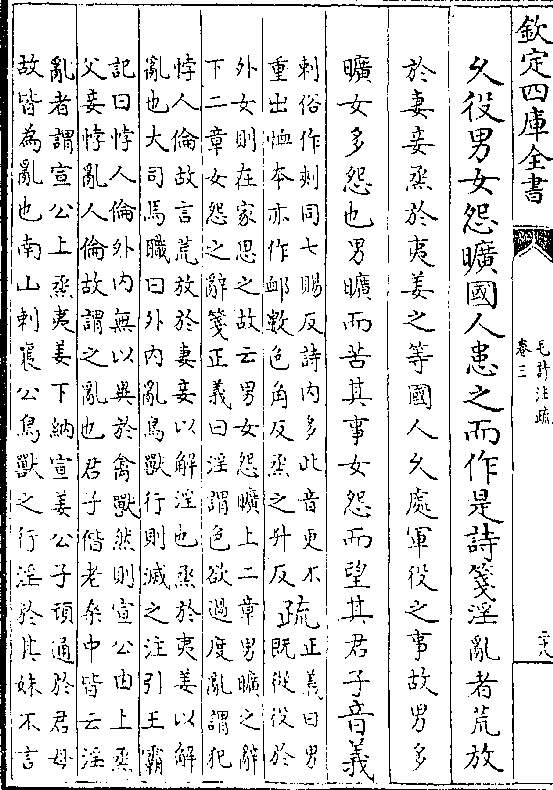 欽定四庫全書
毛詩注疏
卷三
二十八
久役男女怨曠國人患之而作是詩箋淫亂者荒放
於妻妾烝於夷姜之等國人久處軍役之事故男多
曠女多怨也男曠而苦其事女怨而望其君子音義
刺俗作刾同七賜反詩内多此音更不
重出恤本亦作䘏數色角反烝之升反
疏正義曰男
既從役於
外女則在家思之故云男女怨曠上二章男曠之辭
下二章女怨之辭箋正義曰淫謂色欲過度亂謂犯
悖人倫故言荒放於妻妾以解淫也烝於夷姜以解
亂也大司馬職曰外内亂鳥獸行則滅之注引王霸
記曰悖人倫外内無以異於禽獸然則宣公由上烝
父妾悖亂人倫故謂之亂也君子偕老桑中皆云淫
亂者謂宣公上烝夷姜下納宣姜公子頑通於君母
故皆為亂也南山刺襄公鳥獸之行淫於其妹不言